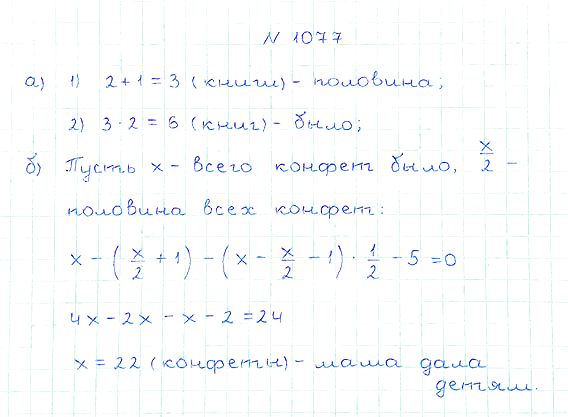 N 1077
а) 1) 2+1=3 (книги) - половина;
2) 3·2=6 (книг) - было;
б) Пусть x - всего конфет было, x/2 -
половина всех конфет:
x - (x/2 + 1) - (x - x/2 - 1) · 1/2 - 5 = 0
4x - 2x - x - 2 = 24
x = 22 (конфеты) - мама дала
детям.